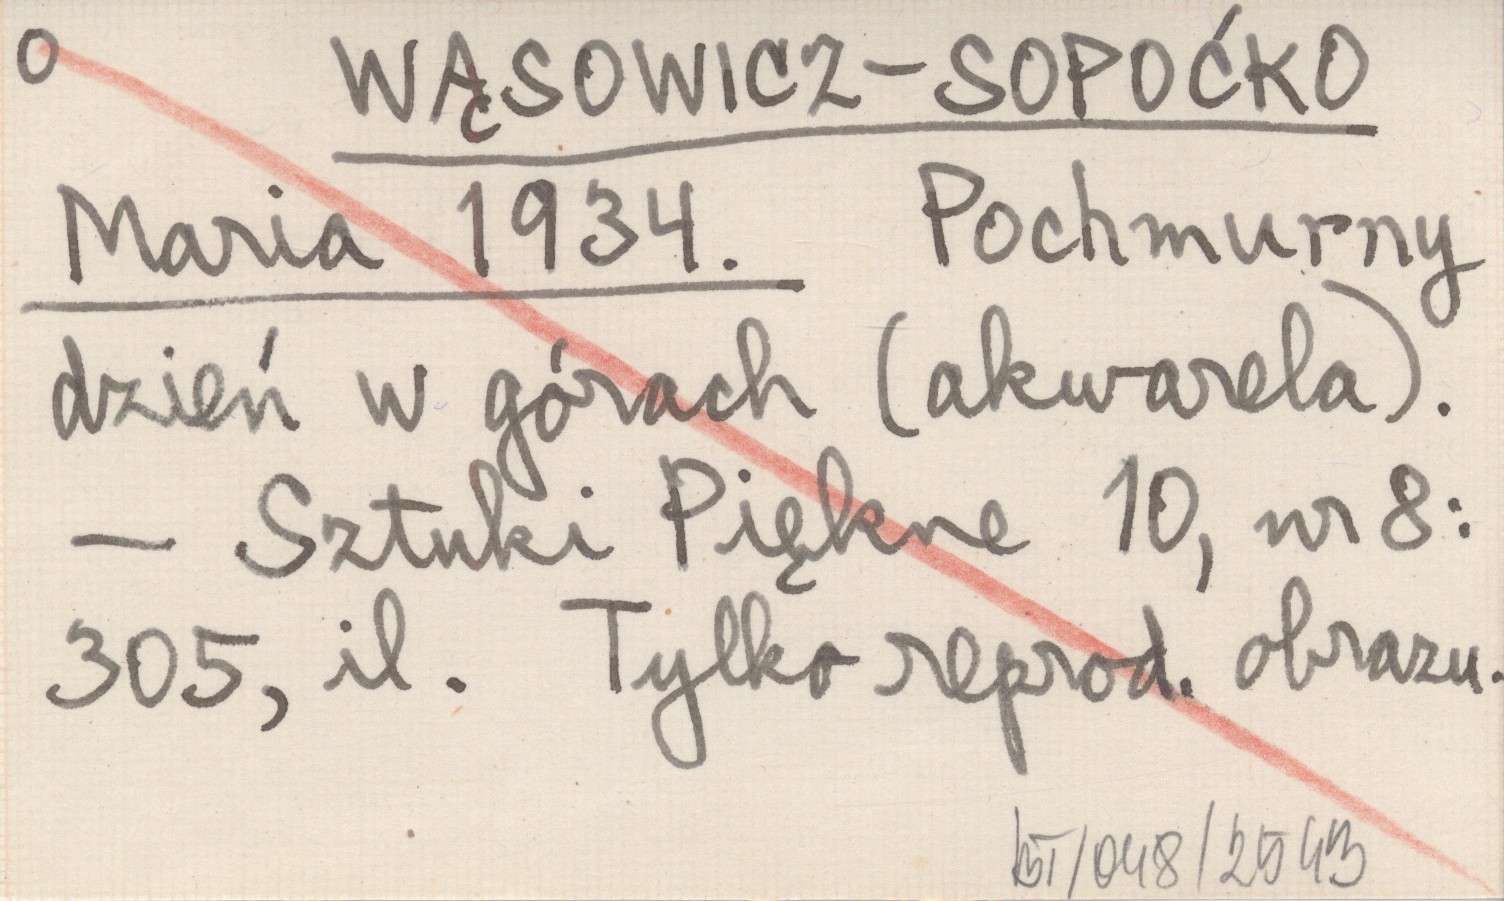 O WĄSOWICZ-SOPOĆKO
Maria 1934. Pochmurny
dzień w górach (akwarela).
— Sztuki Piękne 10, nr 8:
305, il. Tylko reprod. obrazu.
/048/2543